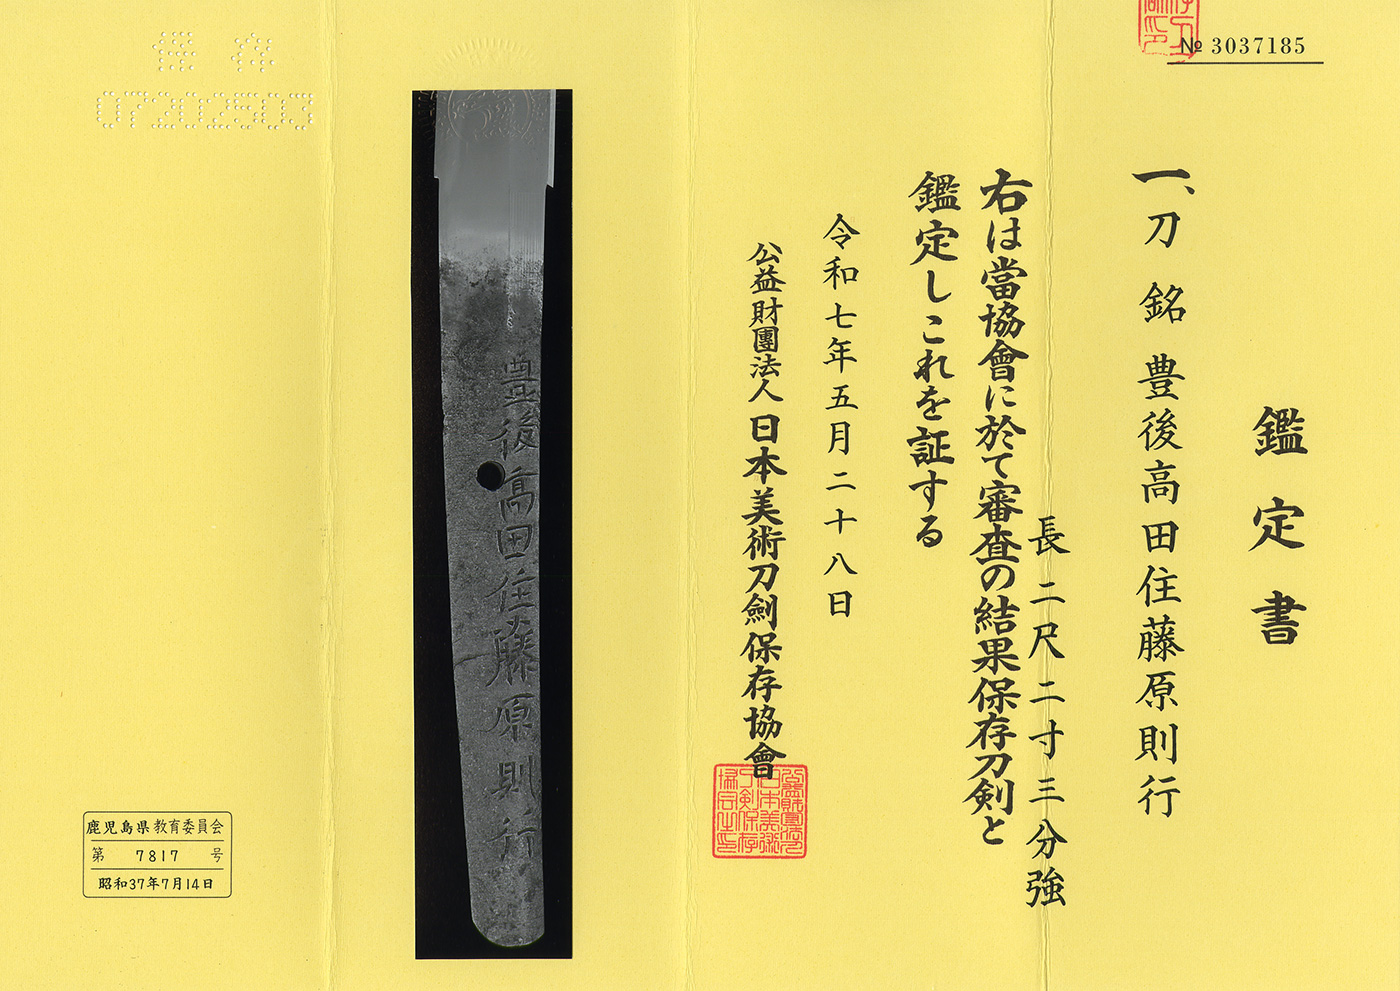 № 3037185
鑑定書
一、刀 銘 豊後高田住藤原則行
長二尺二寸三分強
右は當協會に於て審査の結果保存刀剣と
鑑定しこれを証する
令和七年五月二十八日
公益財團法人日本美術刀劍保存協會
豊後高田住藤原則行
保存
07202503
鹿児島県教育委員会
第 7817 号
昭和37年7月14日